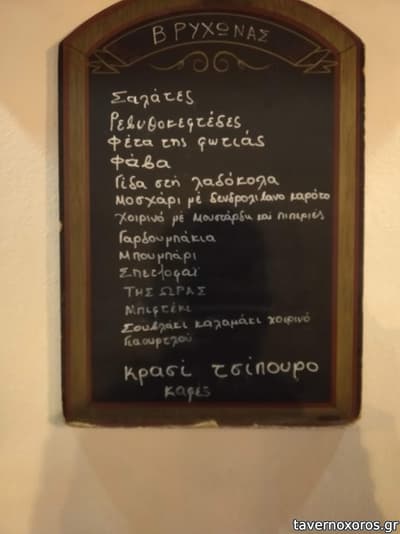 ΒΡΥΧΩΝΑΣ
Σαλάτες
Ρεβυθοκεφτέδες
Φέτα της φωτιάς
Φάβα
Γίδα στη λαδόκολα
Μοσχάρι με δενδρολίβανο καρότο
Χοιρινό με μουστάρδα και πιπεριές
Γαρδουμπάκια
Μπουμπάρι
Σπετσοφαϊ
ΤΗΣ ΩΡΑΣ
Μπιφτέκι
Σουβλάκι καλαμάκι χοιρινό
Γιαουρτλού
κρασί τσίπουρο
καφές
tavernoxoros.gr